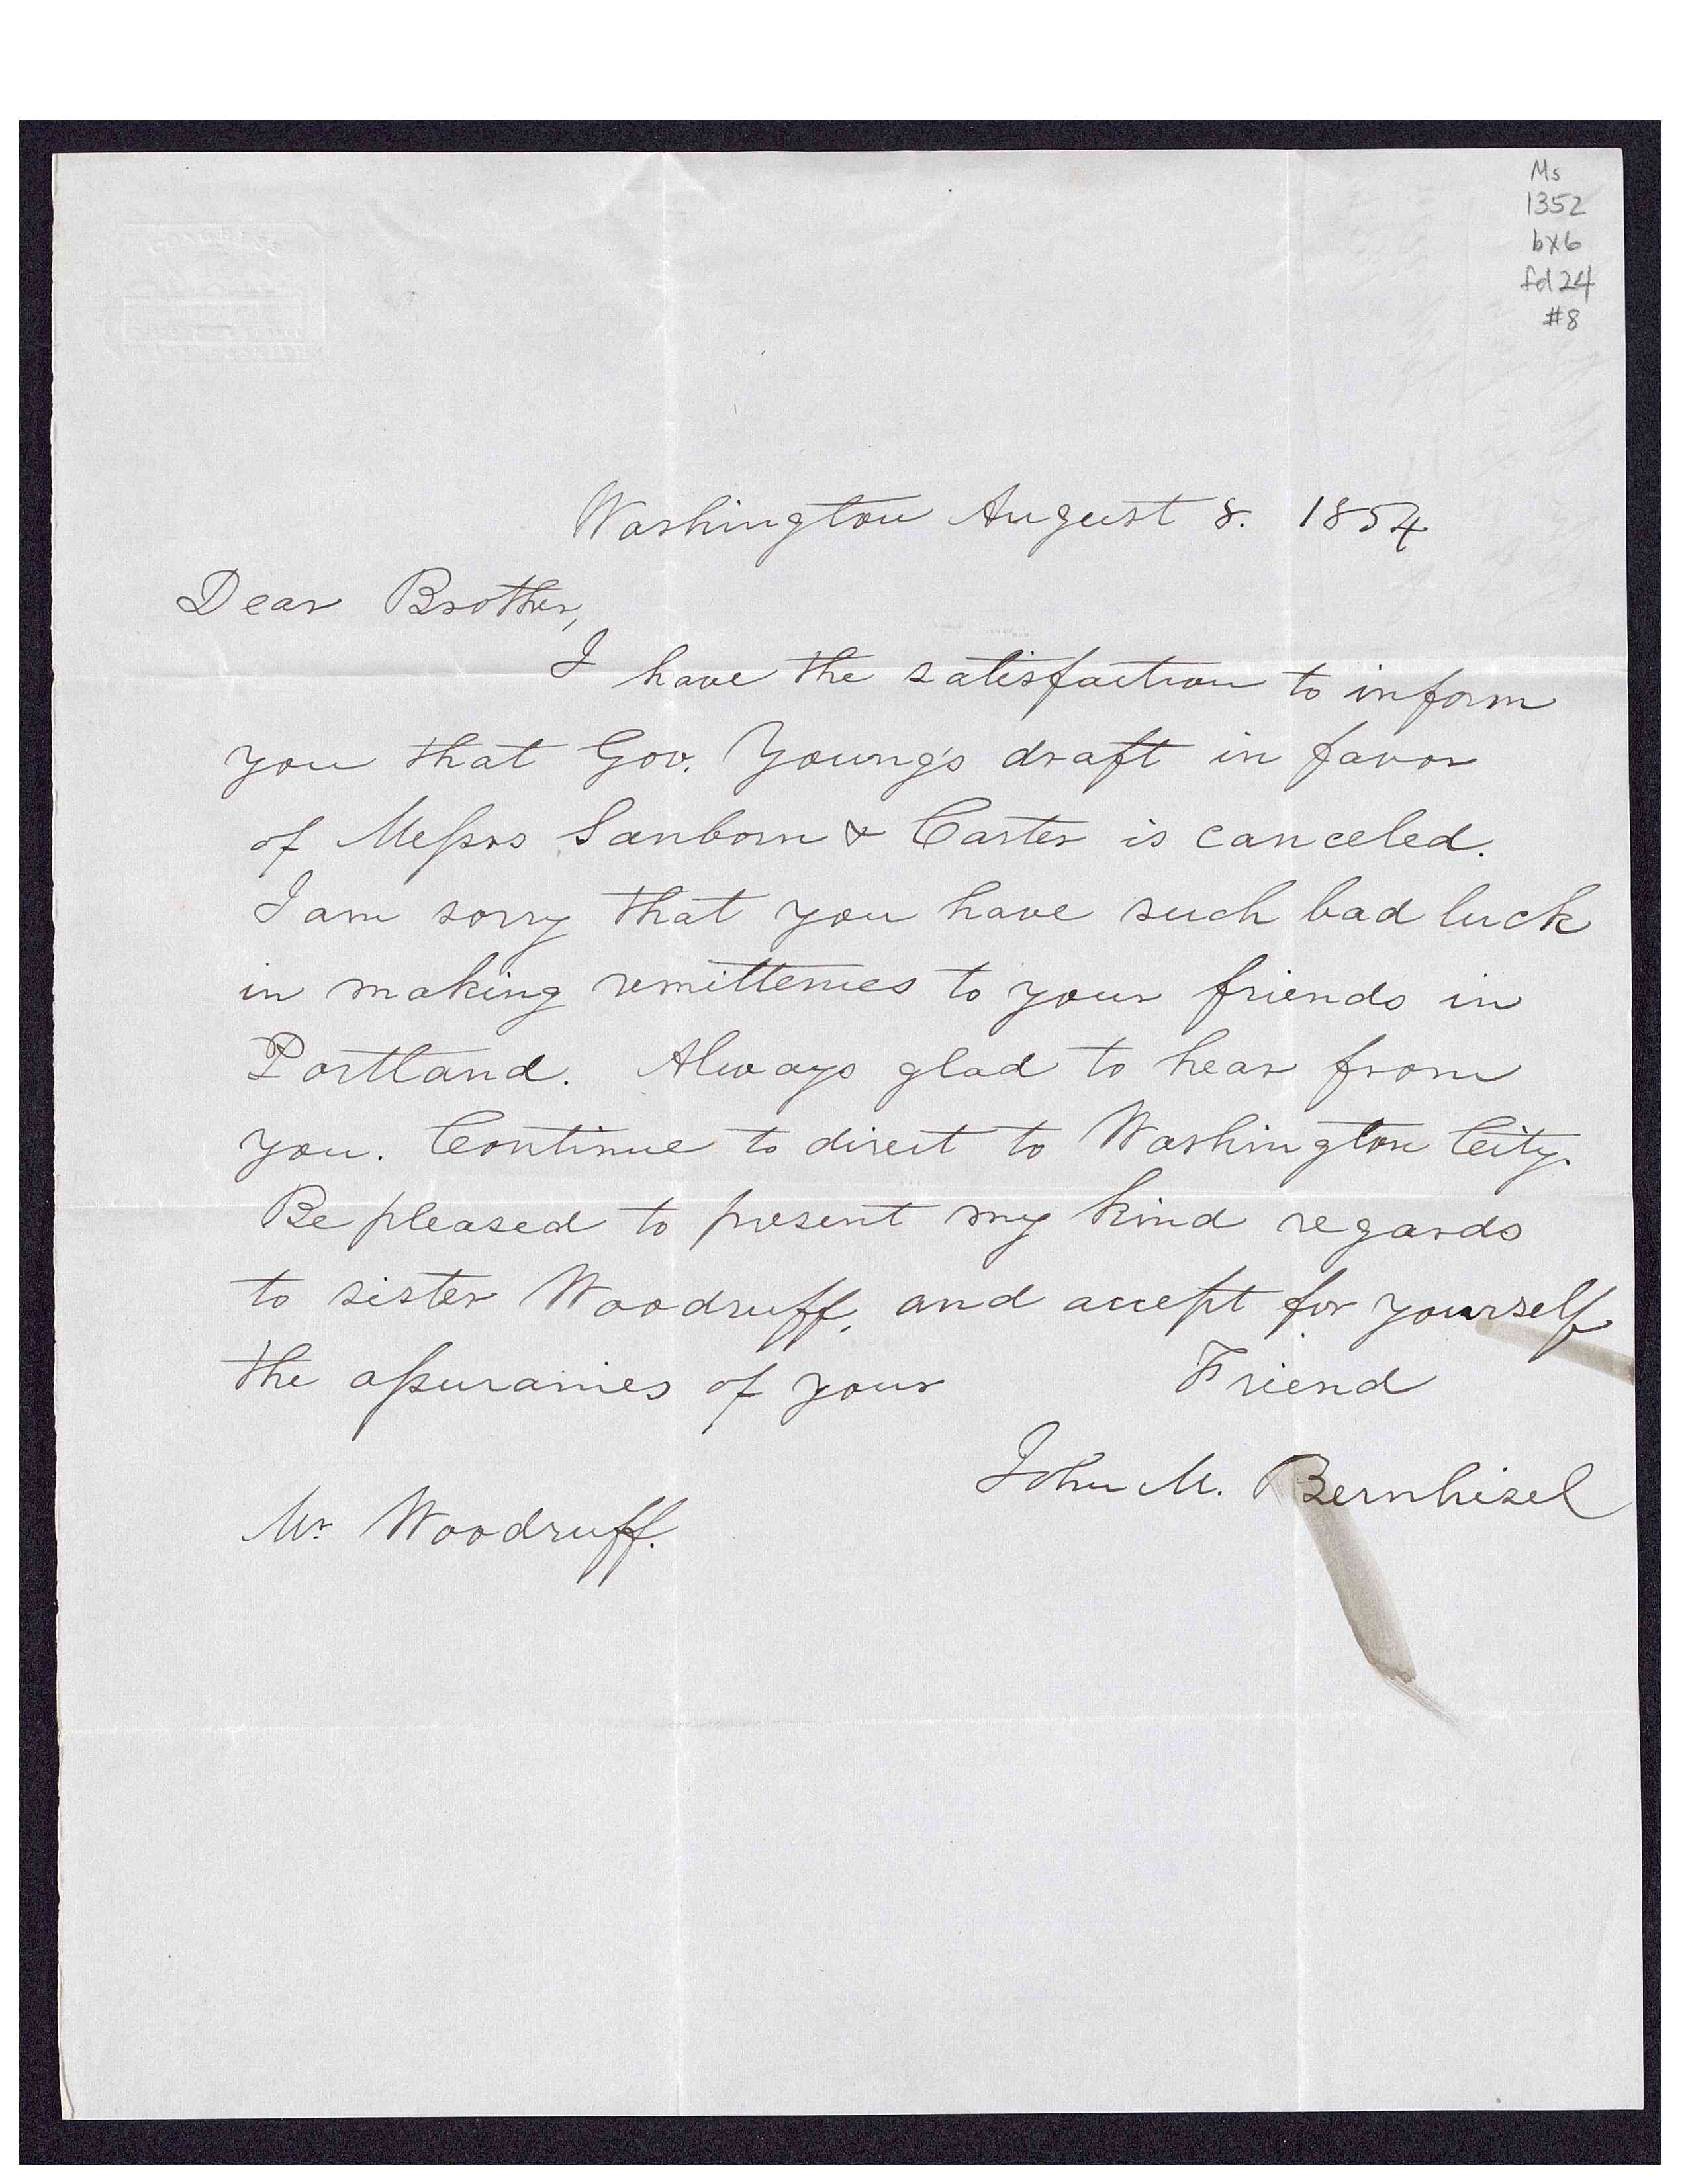 Ms
1352
bx6
fd 24
#8
Washington August 8. 1854
Dear Brother,
I have the satisfaction to inform
you that Gov. Young's draft in favor
of Messrs Sanborn & Carter is canceled.
I am sorry that you have such bad luck
in making remittences to your friends in
Portland. Always glad to hear from
you. Continue to direct to Washington City.
Be pleased to present my kind regards
to sister Woodruff, and accept for yourself
the assurances of your Friend
John M. Bernhisel
Mr Woodruff.